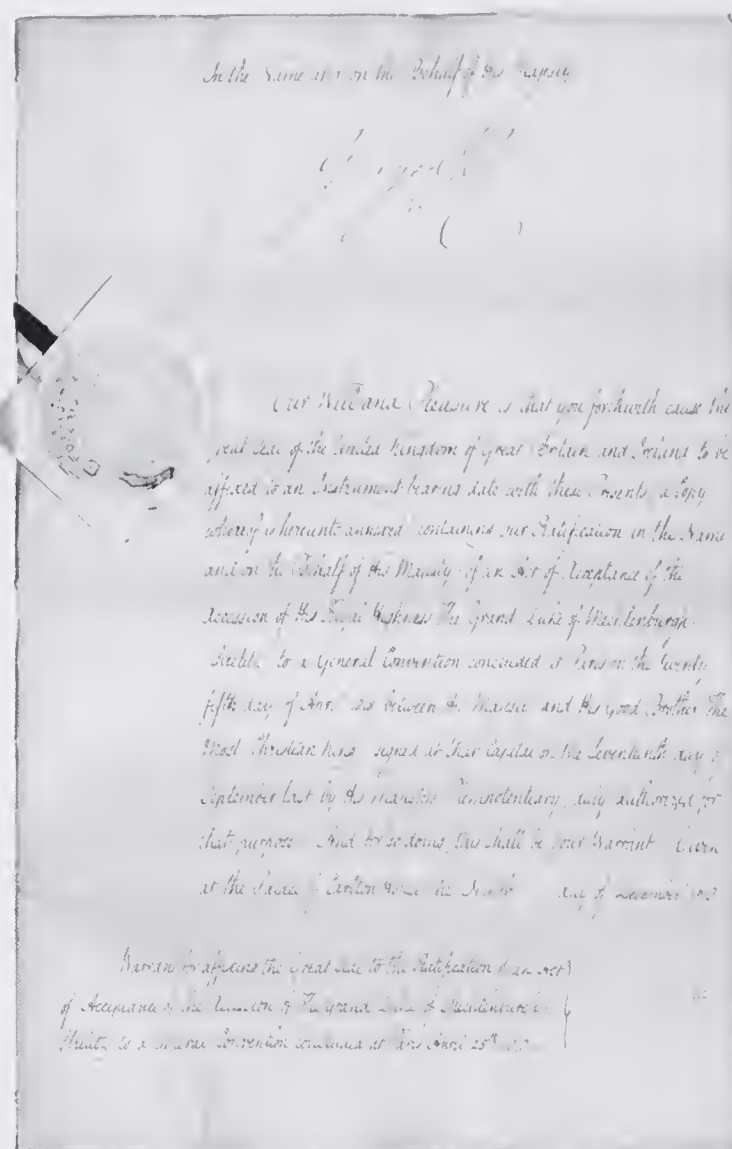 In the Name and on the Behalf of His Majesty
George P.R.
Our Will and Pleasure is that you forthwith cause the
great Seal of the United Kingdom of Great Britain and Ireland to be
affixed to an Instrument bearing date with these Presents, a Copy
whereof is hereunto annexed containing our Ratification in the Name
and on the Behalf of His Majesty of an Act of Acceptance of the
accession of His Royal Highness The Grand Duke of Mecklenburgh
Strelitz to a general Convention concluded at Paris on the Twenty
fifth day of April between His Majesty and His Good Brother The
Most Christian King signed at that Capital on the Seventeenth day of
September last by His Majesty's Plenipotentiary, duly authorized for
that purpose And for so doing, this shall be your Warrant Given
at the Palace of Carlton House the day of December
Warrant for affixing the Great Seal to the Ratification of an Act
of Acceptance of the Accession of The Grand Duke of Mecklenburgh
Strelitz to a general Convention concluded at Paris April 25th